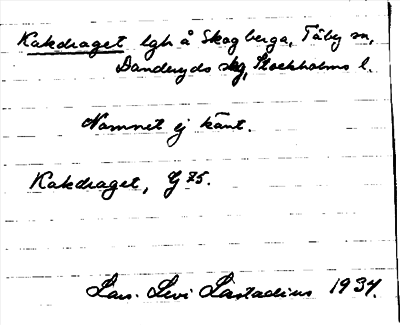 Kakdraget lgh å Skogberga, Täby sn,
Danderyds skg, Stockholms l.
Namnet ej känt.
Kakdraget, G 75.
Lars-Levi Læstadius 1937.